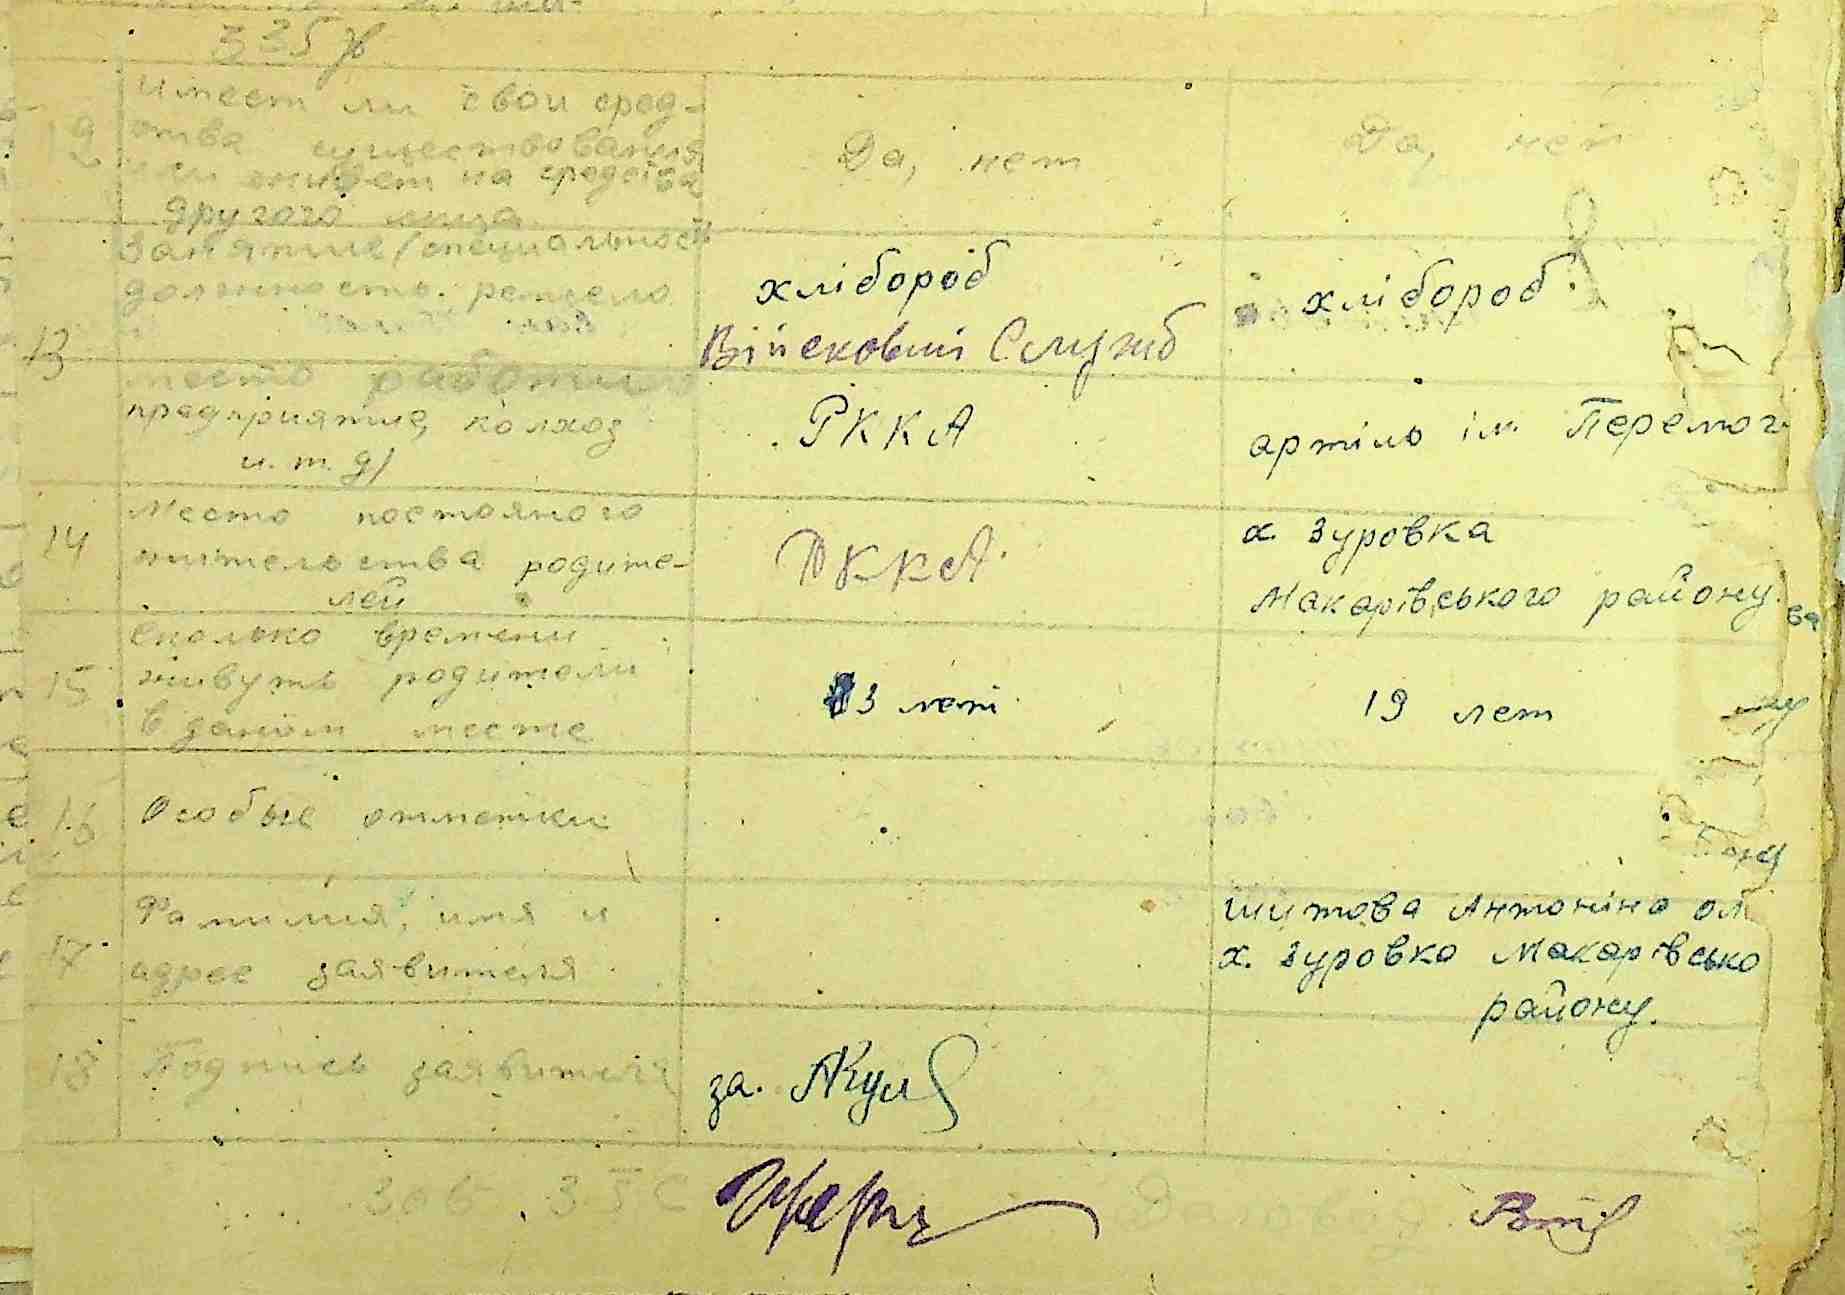 Имеет ли свои сред-
ства существования
или живет на средства
другого лица
Да, нет
Да, нет
13
Занятие (специальность
должность. ремесло
хлібороб
Війсковий Служб
хлібороб
место работы
предприятие, колхоз
и. т. д)
РККА
артіль ім. Перемог
14
Место постояного
жительства родите-
лей
РККА.
х. Зуровка
Макарівського району.
15
Сколько времени
живуть родители
в даном месте
3 лет
19 лет
16
Особые отметки
17
Фамилия, имя и
адрес заявителя
Шутова Антоніна ол
х. Зуровка Макарівсько
району.
18
Подпись заявителя
за.